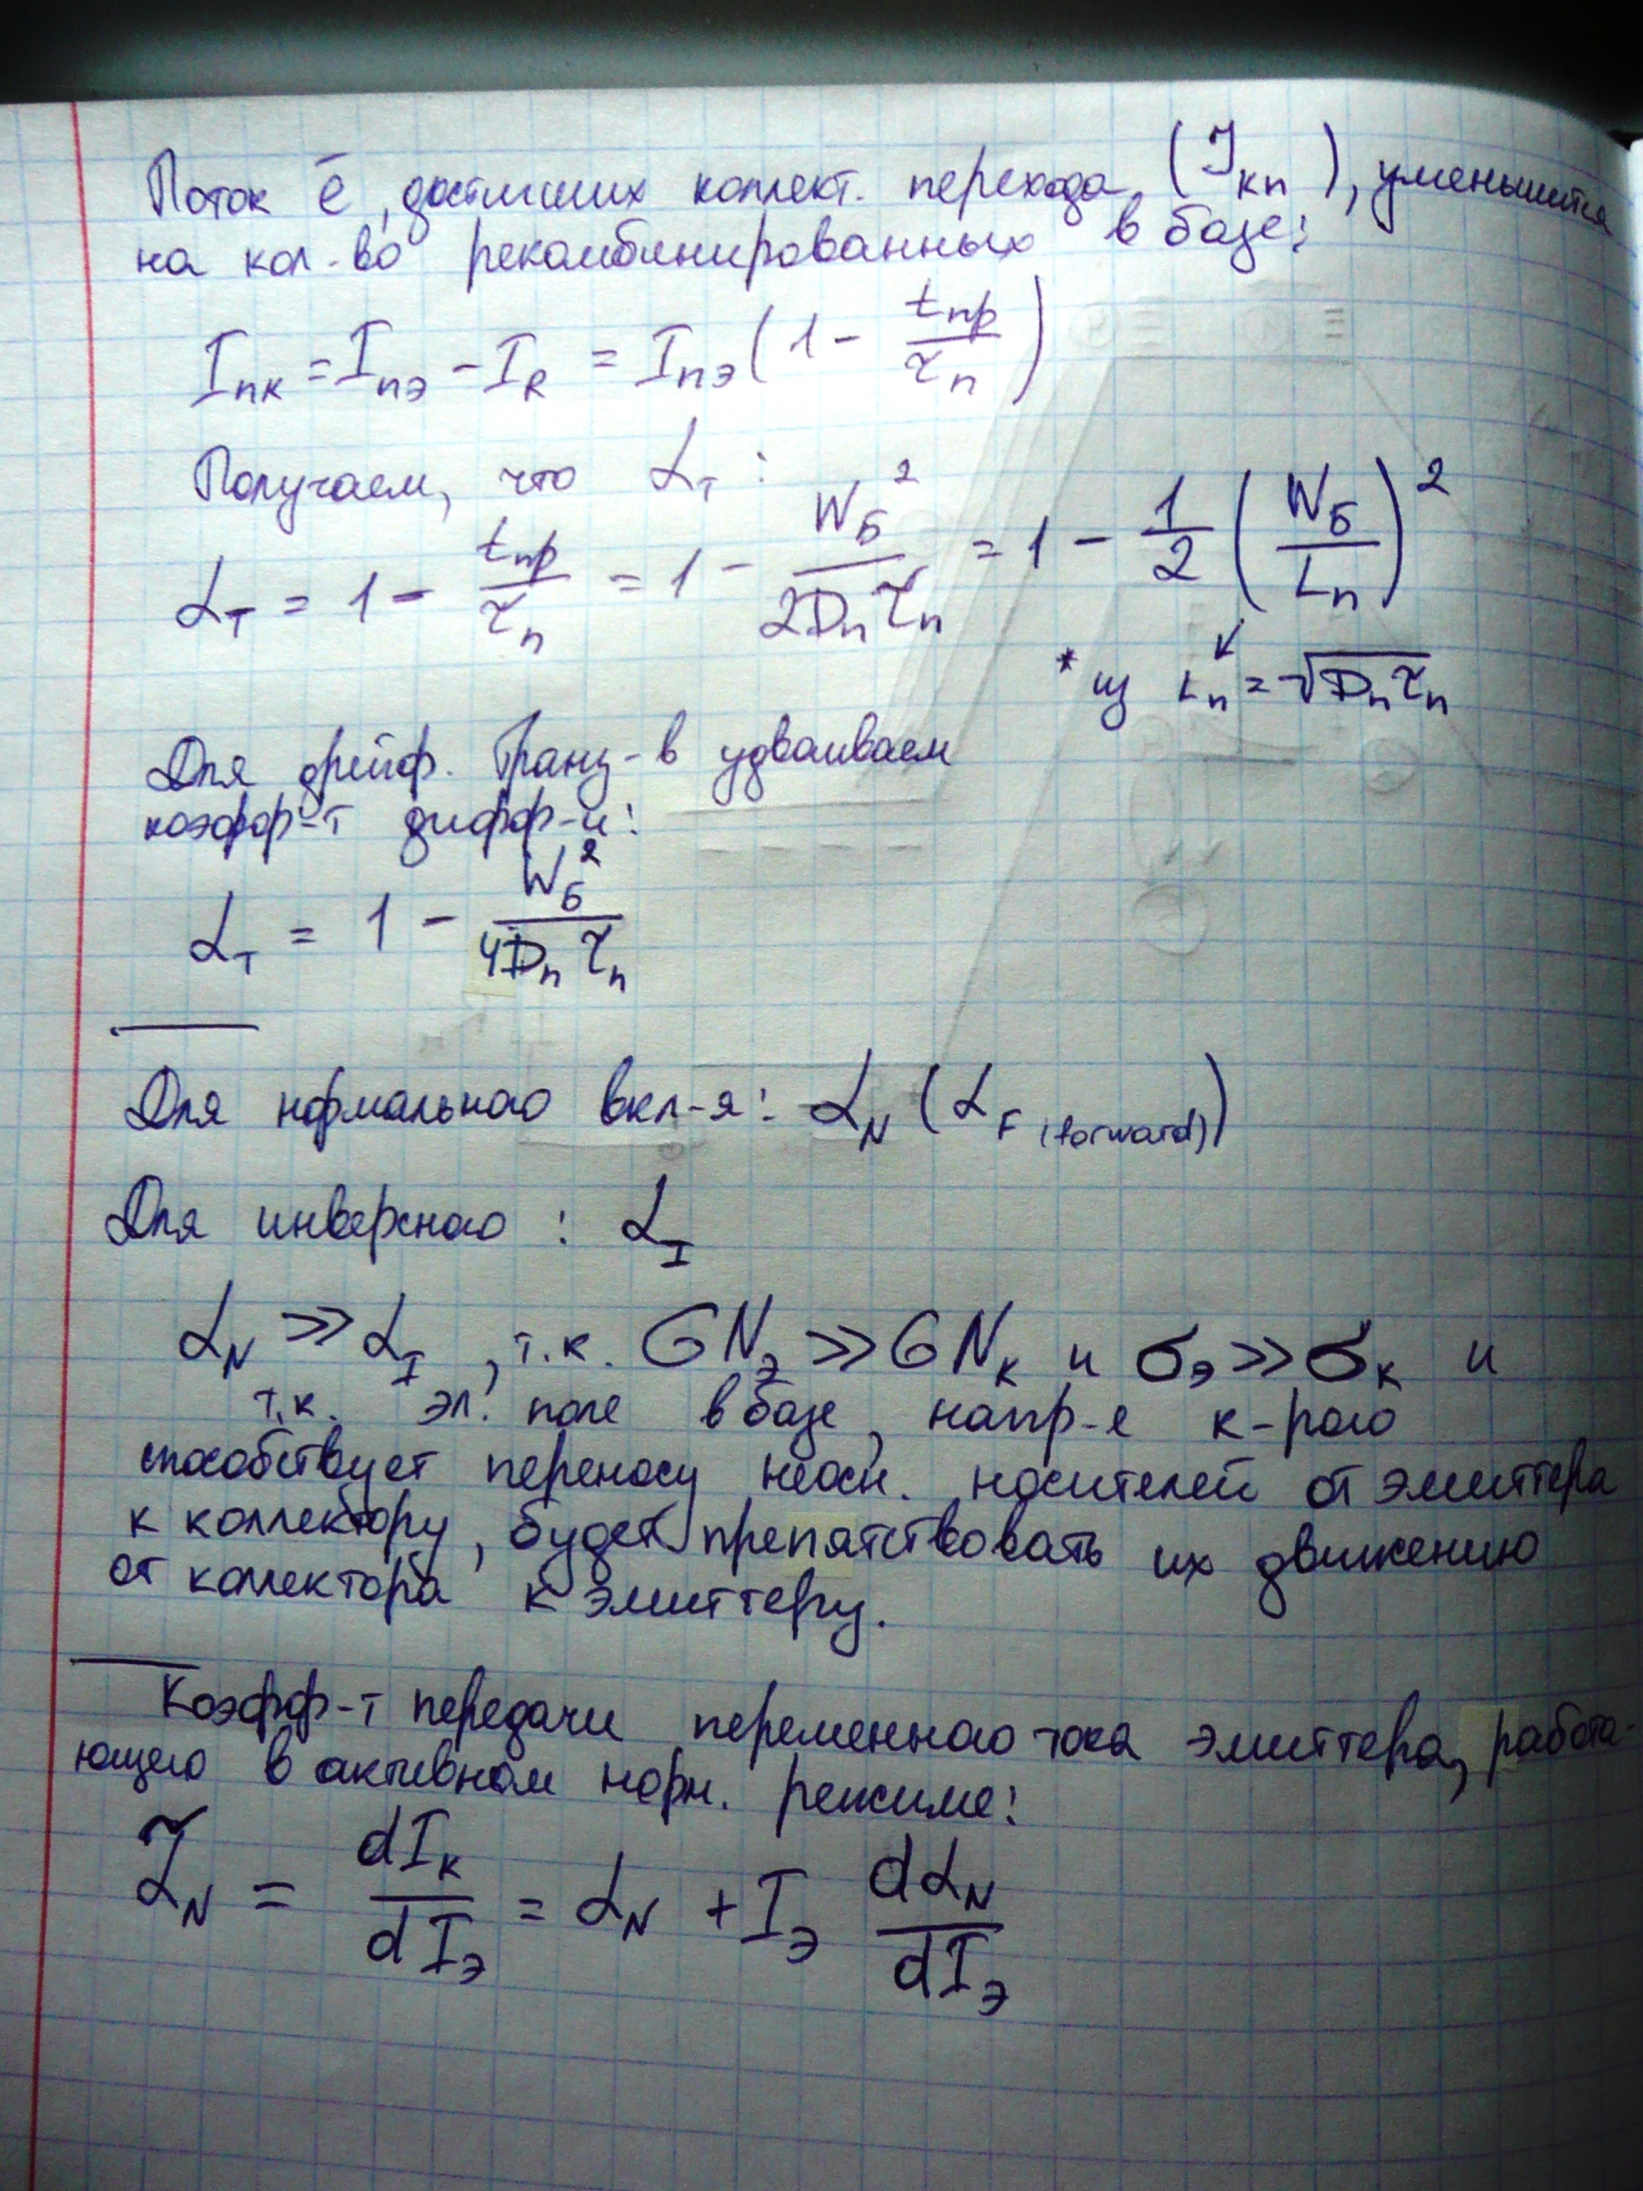 Поток ē, достигших коллект. перехода (I_кп), уменьшится
на кол-во рекомбинированных в базе:
I_пк = I_пэ - I_R = I_пэ (1 - t_пр/τ_n)
Получаем, что α_T :
α_T = 1 - t_пр/τ_n = 1 - W_Б²/(2D_n τ_n) = 1 - 1/2 (W_Б/L_n)²
* из L_n = √(D_n τ_n)
Для дрейф. транз-в удваиваем
коэфф-т дифф-и:
α_T = 1 - W_Б²/(4D_n τ_n)
Для нормального вкл-я: α_N (α_F (forward))
Для инверсного : α_I
α_N >> α_I, т.к. GN_э >> GN_к и σ_э >> σ_к и
т.к. эл. поле в базе, напр-е к-рого
способствует переносу неосн. носителей от эмиттера
к коллектору, будет препятствовать их движению
от коллектора к эмиттеру.
Коэфф-т передачи переменного тока эмиттера, работа-
ющего в активном норм. режиме:
α̃_N = dI_к/dI_э = α_N + I_э dα_N/dI_э